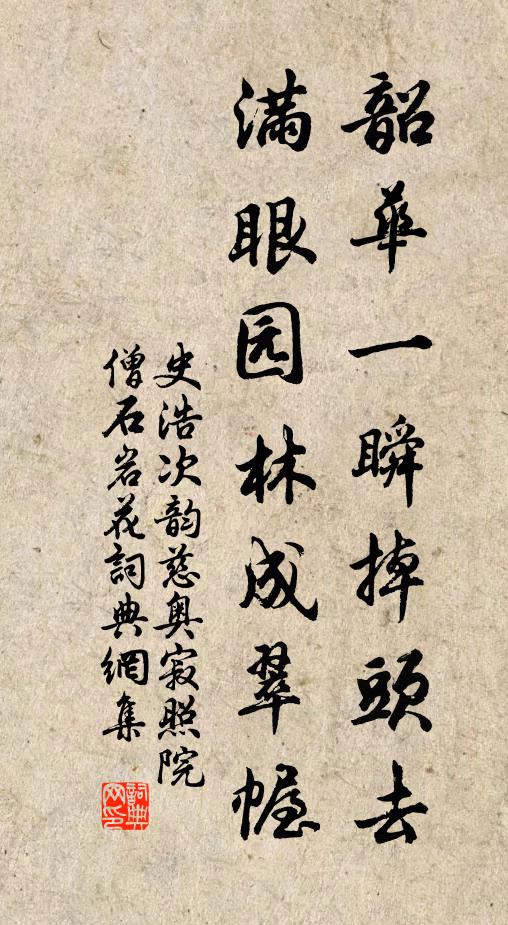 韶華一瞬掉頭去
滿眼园林成翠幄
史浩次韵慈奥寂照院
僧石岩花詞典網集
詞典网印